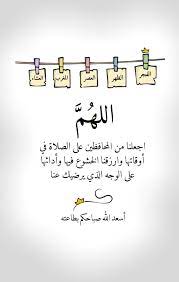 الفجر الظهر العصر المغرب العشاء
اللهُمَّ
اجعلنا من المحافظين على الصلاة في
أوقاتها وارزقنا الخشوع فيها وأدائها
على الوجه الذي يرضيك عنا
أسعد الله صباحكم بطاعته